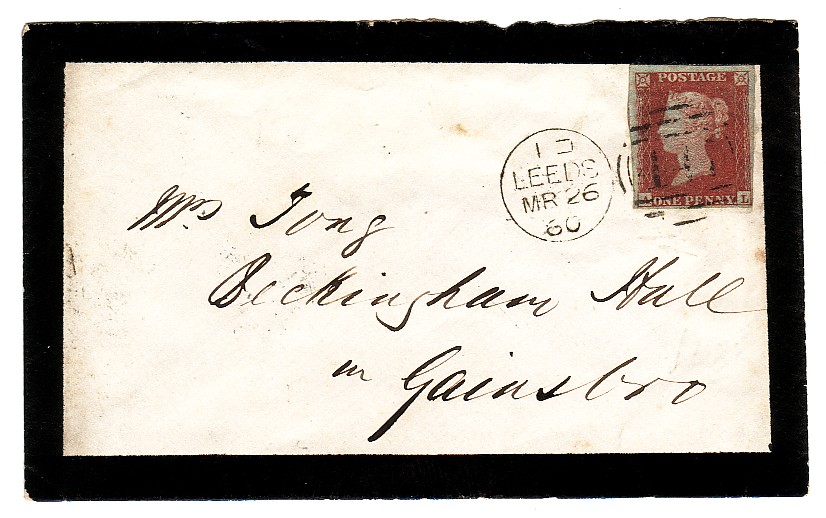 POSTAGE
ONE PENNY
L
LEEDS
MR 26
60
Mrs Tong
Beckingham Hall
nr Gainsbro